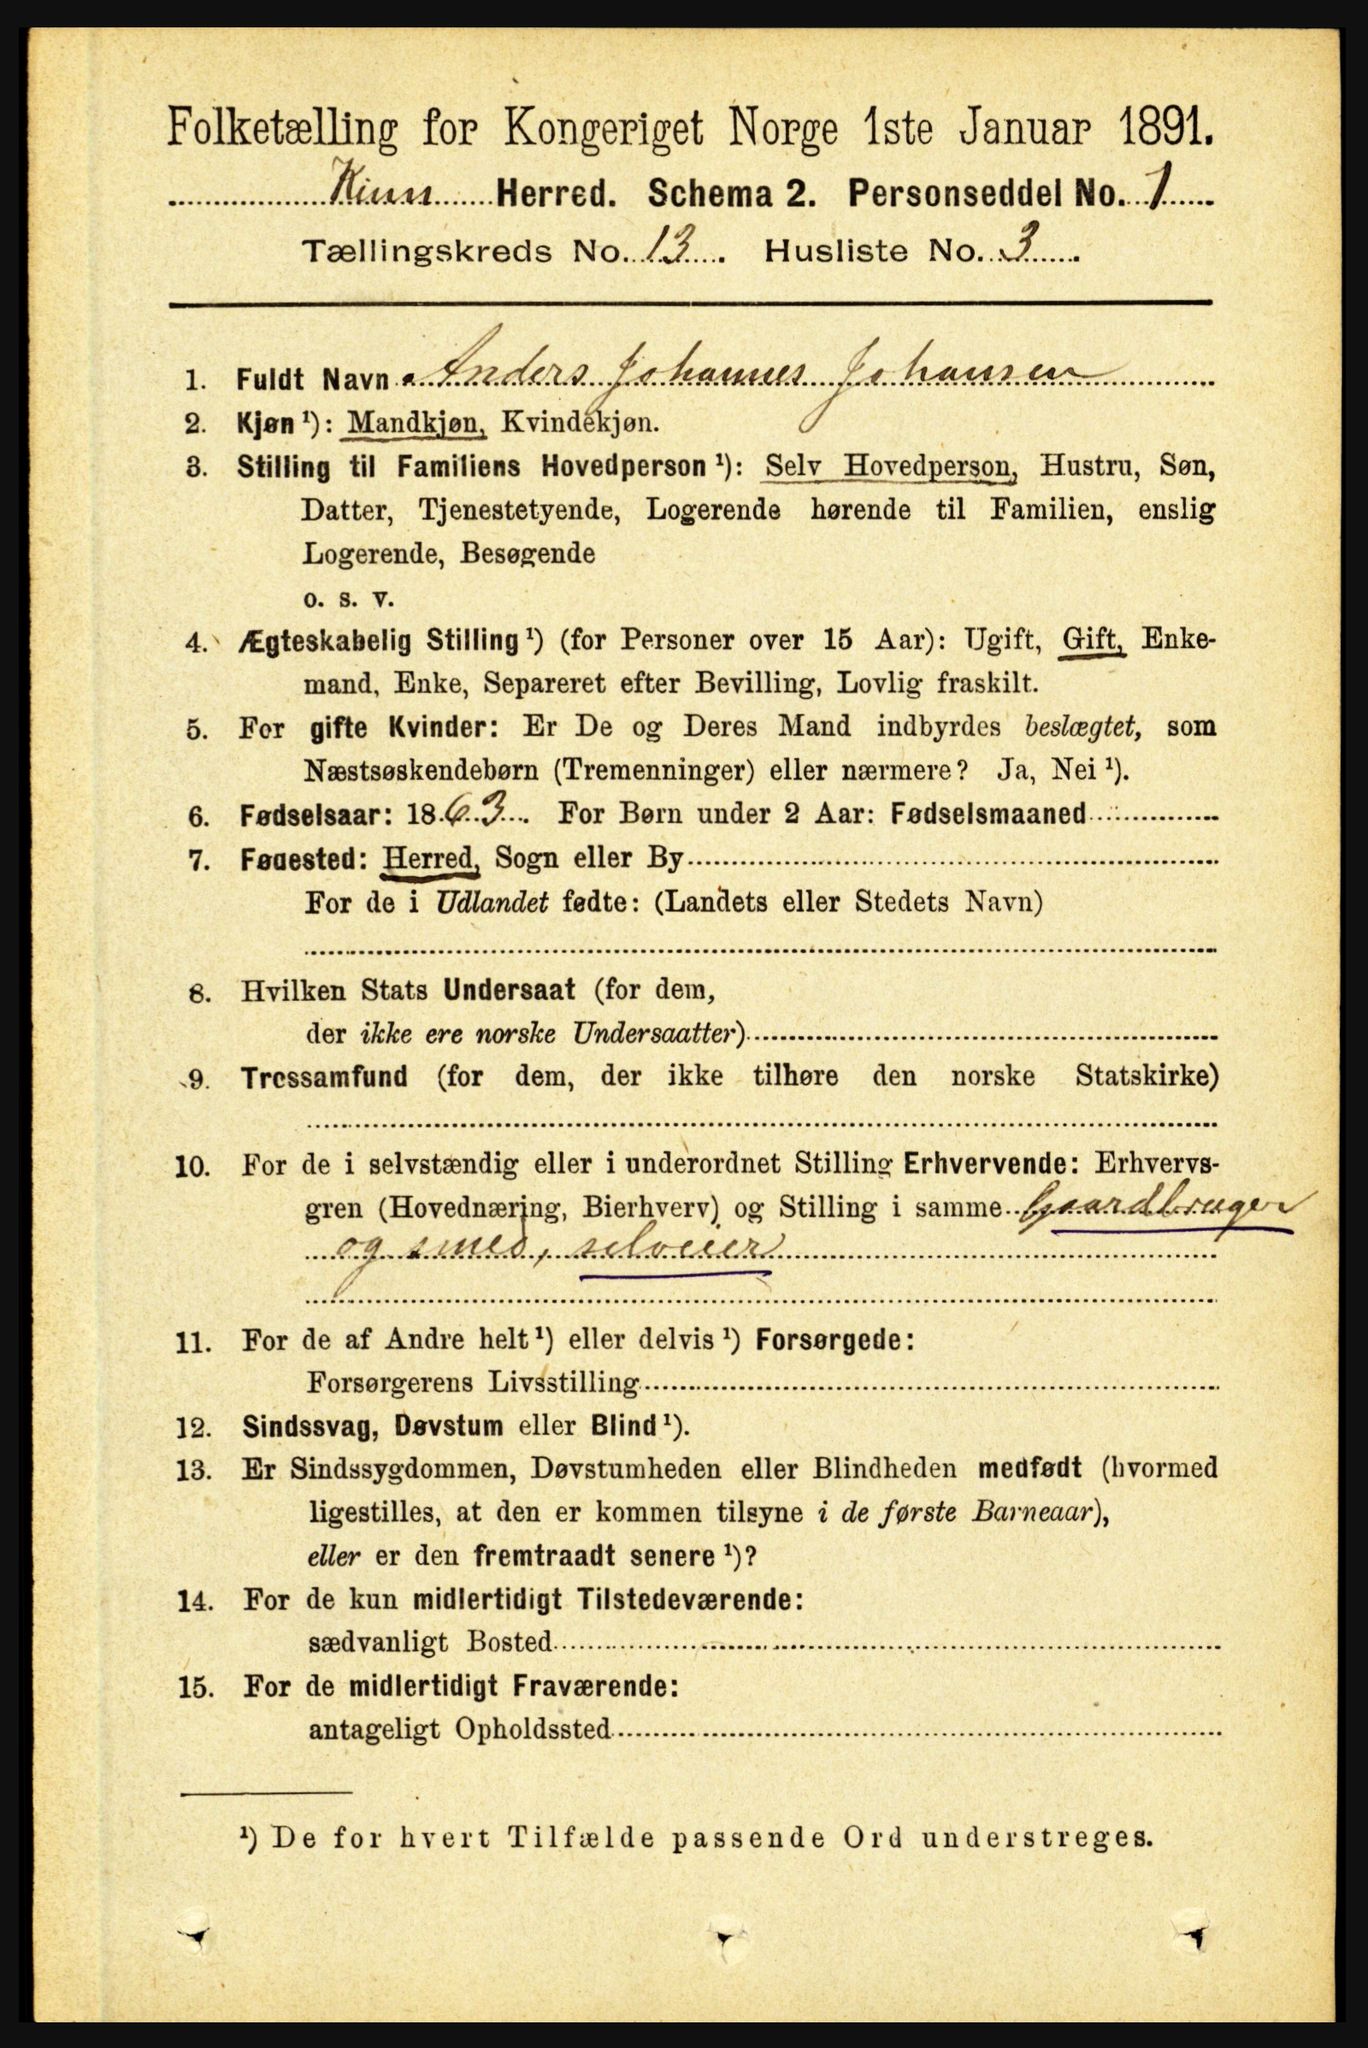 Folketælling for Kongeriget Norge 1ste Januar 1891.
Kinn Herred. Schema 2. Personseddel No. 1
Tællingskreds No. 13. Husliste No. 3.
1. Fuldt Navn Anders Johannes Johansen
2. Kjøn ¹): Mandkjøn, Kvindekjøn.
3. Stilling til Familiens Hovedperson ¹): Selv Hovedperson, Hustru, Søn,
Datter, Tjenestetyende, Logerende hørende til Familien, enslig
Logerende, Besøgende
o. s. v.
4. Ægteskabelig Stilling ¹) (for Personer over 15 Aar): Ugift, Gift, Enke-
mand, Enke, Separeret efter Bevilling, Lovlig fraskilt.
5. For gifte Kvinder: Er De og Deres Mand indbyrdes beslægtet, som
Næstsøskendebørn (Tremenninger) eller nærmere? Ja, Nei ¹).
6. Fødselsaar: 1863. For Børn under 2 Aar: Fødselsmaaned
7. Fødested: Herred, Sogn eller By
For de i Udlandet fødte: (Landets eller Stedets Navn)
8. Hvilken Stats Undersaat (for dem,
der ikke ere norske Undersaatter)
9. Trossamfund (for dem, der ikke tilhøre den norske Statskirke)
10. For de i selvstændig eller i underordnet Stilling Erhvervende: Erhvervs-
gren (Hovednæring, Bierhverv) og Stilling i samme Gaardbruger
og smed, selveier
11. For de af Andre helt ¹) eller delvis ¹) Forsørgede:
Forsørgerens Livsstilling
12. Sindssvag, Døvstum eller Blind ¹).
13. Er Sindssygdommen, Døvstumheden eller Blindheden medfødt (hvormed
ligestilles, at den er kommen tilsyne i de første Barneaar),
eller er den fremtraadt senere ¹)?
14. For de kun midlertidigt Tilstedeværende:
sædvanligt Bosted
15. For de midlertidigt Fraværende:
antageligt Opholdssted
¹) De for hvert Tilfælde passende Ord understreges.